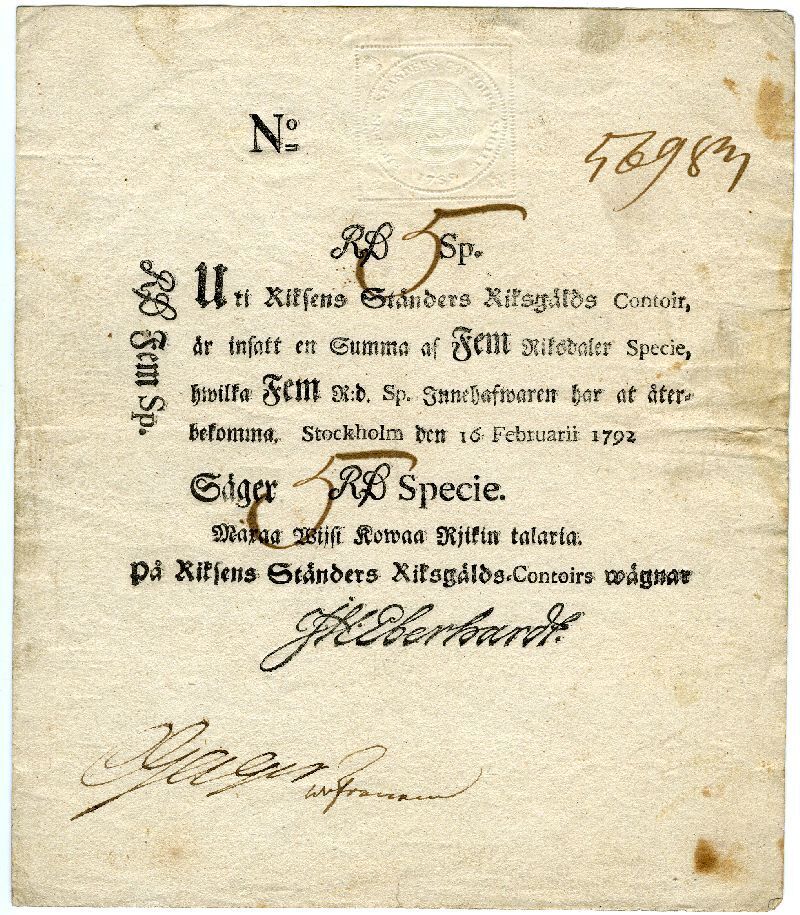 No
56983
RD 5 Sp.
RD Fem Sp.
Uti Riksens Ständers Riksgälds Contoir,
är insatt en Summa af Fem Riksdaler Specie,
hwilka Fem R:d. Sp. Innehafwaren har at åter-
bekomma. Stockholm den 16 Februarii 1792
Säger 5 RD Specie.
Maxaa Wijsi Kowaa Rjikin talaria.
På Riksens Ständers Riksgälds-Contoirs wägnar
JH Eberhardt.